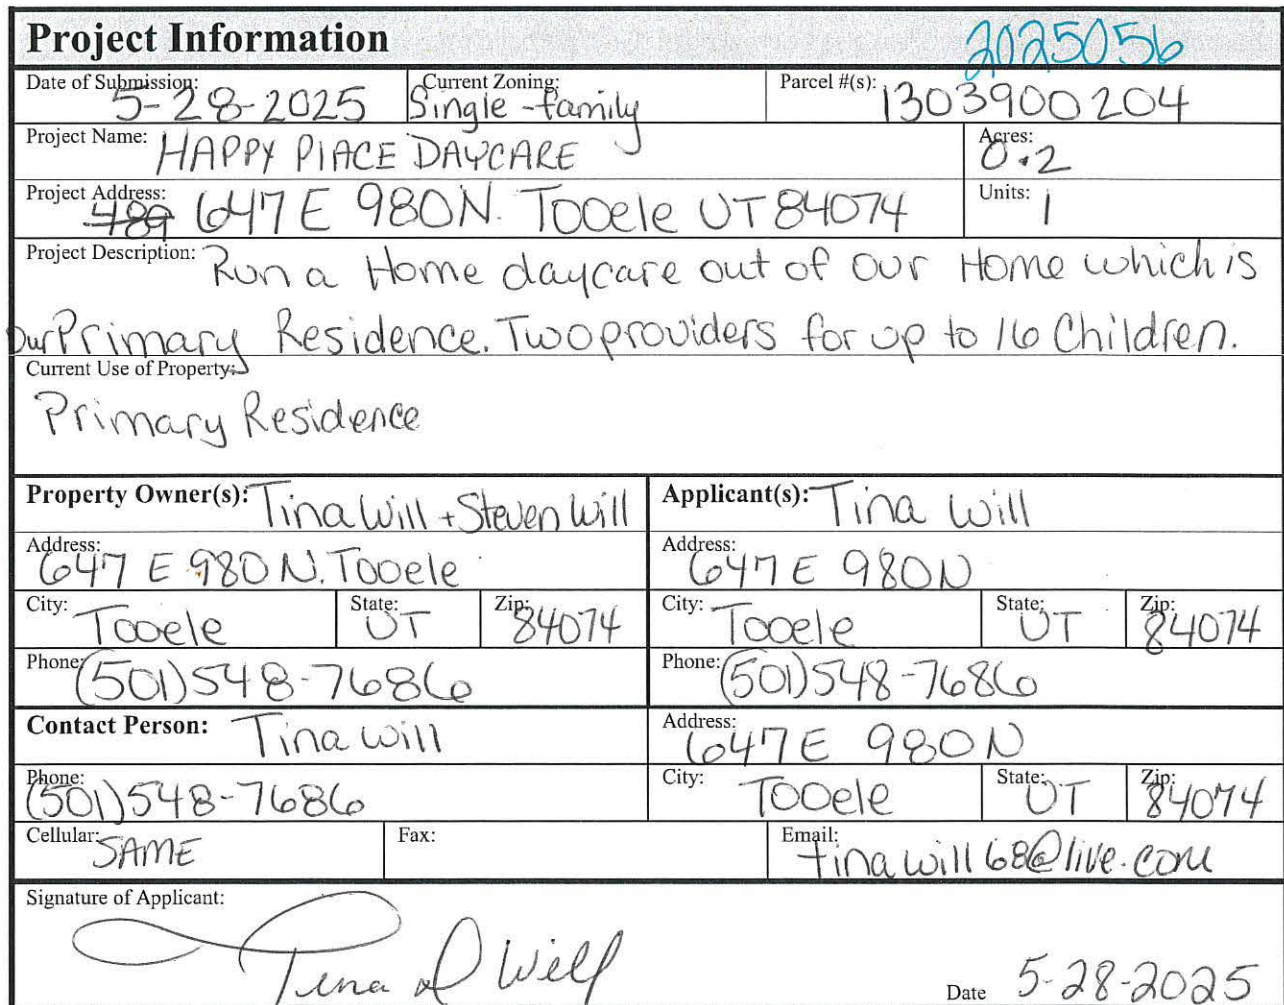 Project Information 2025056
Date of Submission: 5-28-2025 Current Zoning: Single-family Parcel #(s): 1303900204
Project Name: HAPPY PLACE DAYCARE Acres: 0.2
Project Address: 489 647 E 980 N. Tooele UT 84074 Units: 1
Project Description: Run a Home daycare out of our Home which is
our Primary Residence. Two providers for up to 16 Children.
Current Use of Property:
Primary Residence
Property Owner(s): Tina Will + Steven Will Applicant(s): Tina Will
Address: 647 E 980 N. Tooele Address: 647 E 980 N
City: Tooele State: UT Zip: 84074 City: Tooele State: UT Zip: 84074
Phone: (501) 548-7686 Phone: (501) 548-7686
Contact Person: Tina Will Address: 647 E 980 N
Phone: (501) 548-7686 City: Tooele State: UT Zip: 84074
Cellular: SAME Fax: Email: tinawill68@live.com
Signature of Applicant:
Tina D Will Date 5-28-2025